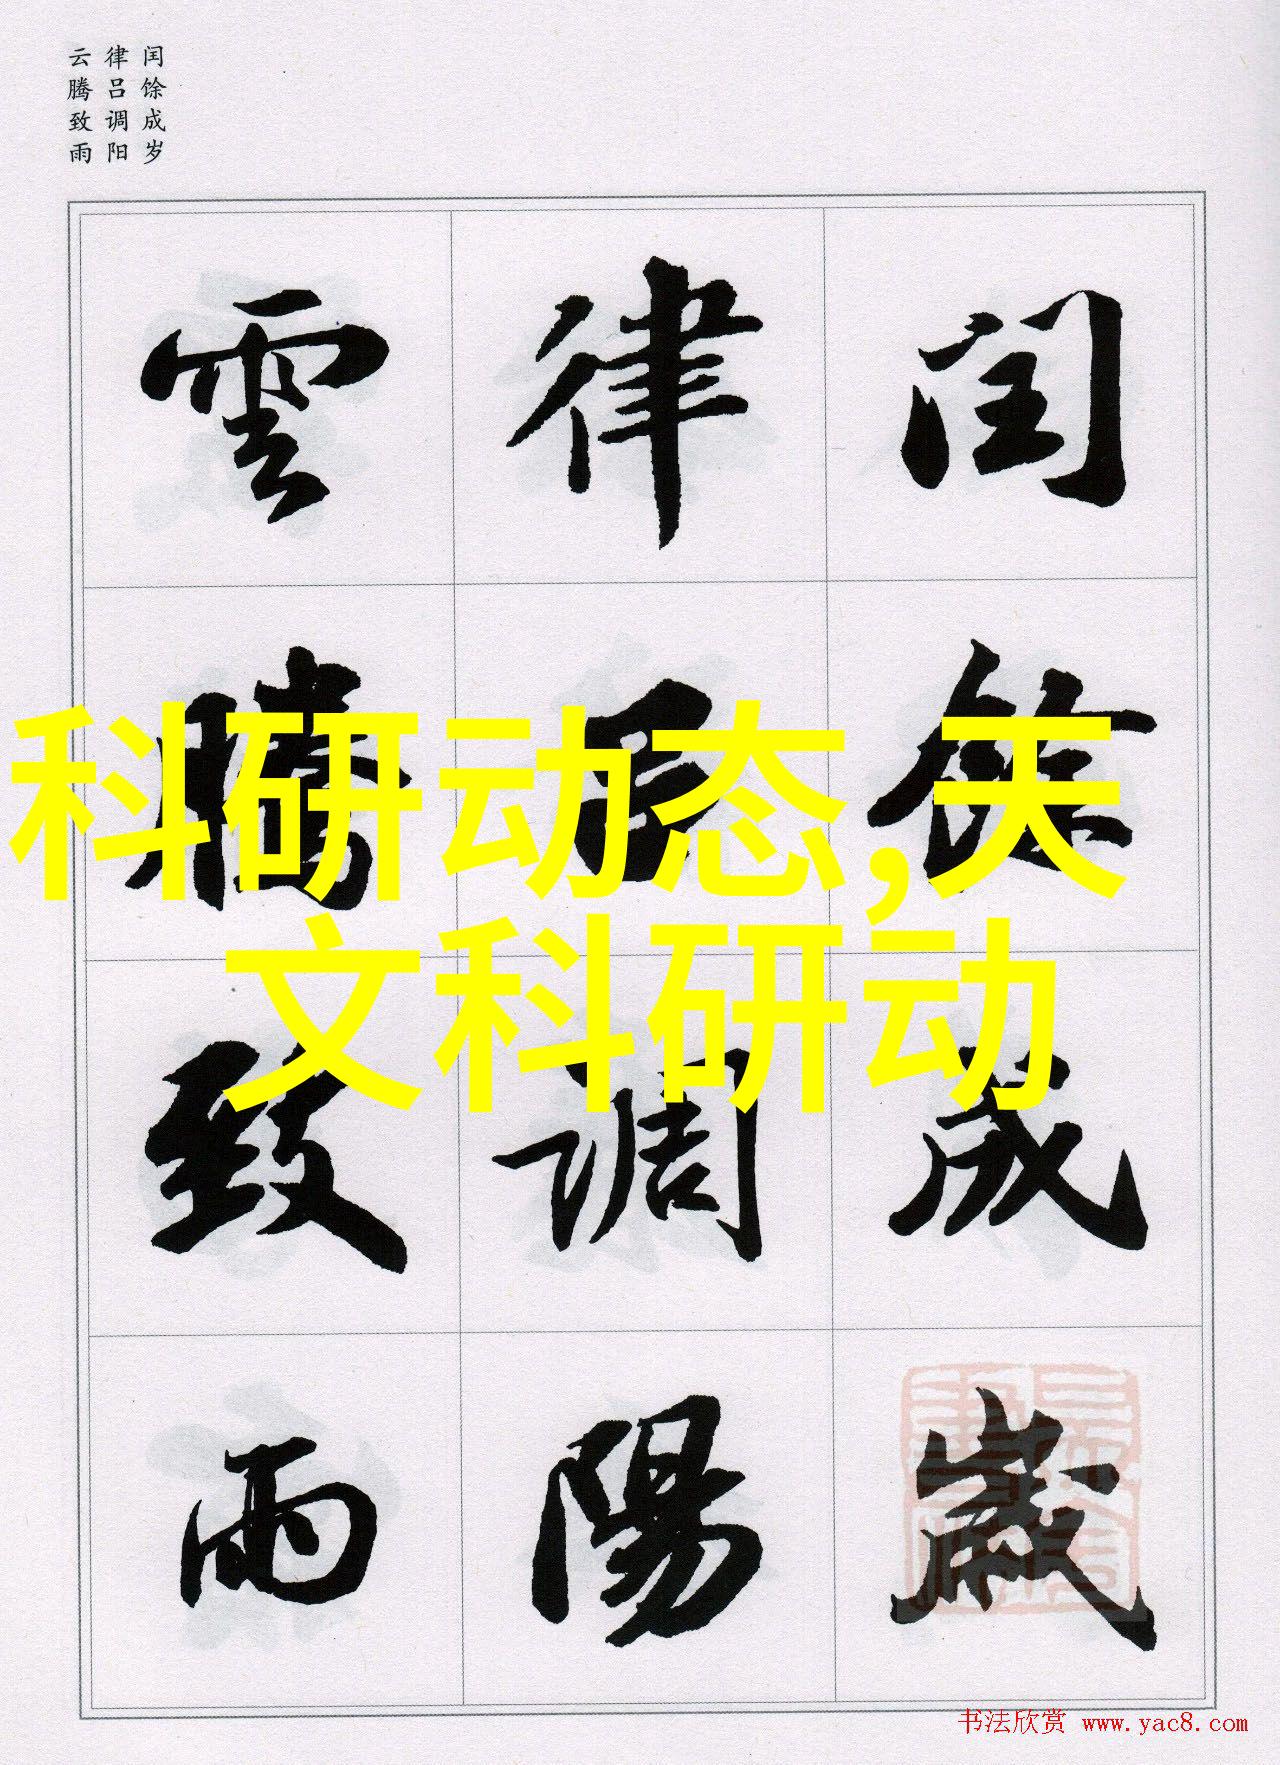 闰馀成岁
律吕调阳
云腾致雨
閏餘成歲
律吕調陽
雲騰致雨
科研动态,天
文科研动
书法欣赏 www.yac8.com